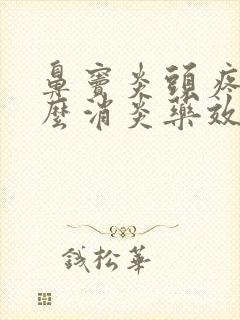 鼻竇炎頭疼
麼消炎藥效
錢松華